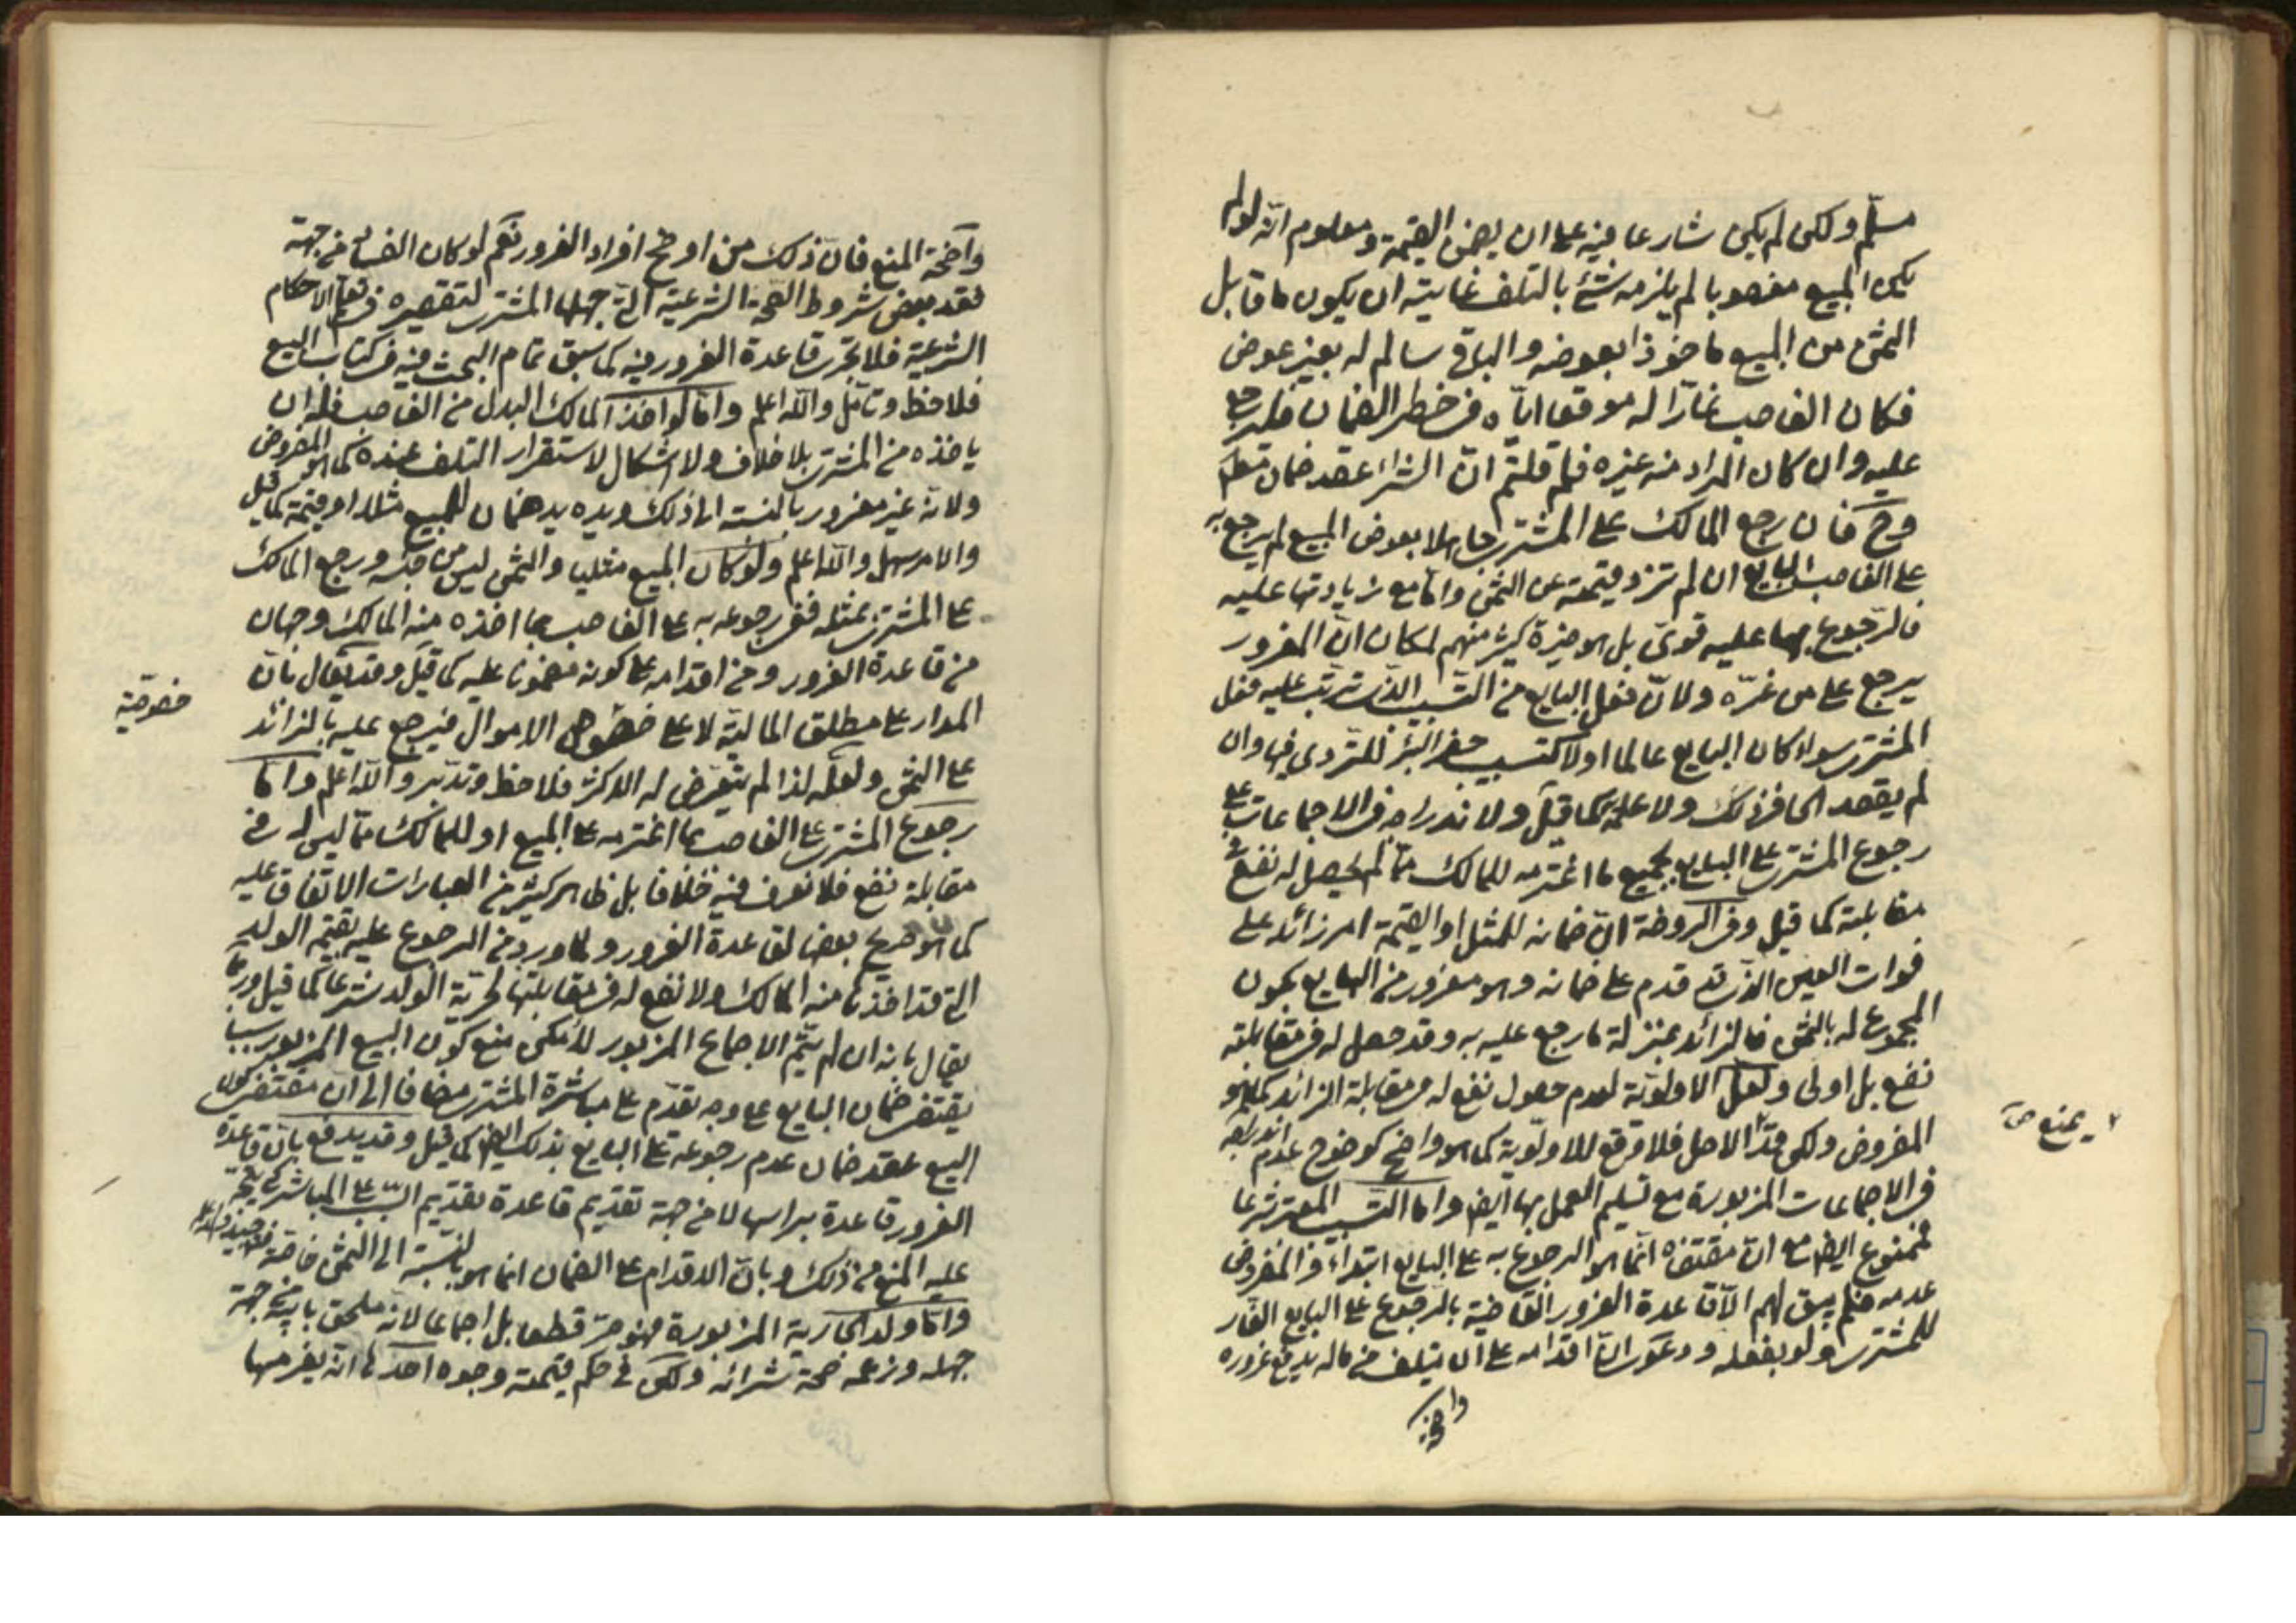 مسلّم ولكن لم يكن شارعا فيه على ان يضمن القيمة ومعلوم انّه لو لم
يكن المبيع مغصوبا لم يلزمه شئ بالتلف غايته ان يكون ما قابل
الثمن من المبيع ماخوذا بعوضه والباقي سالم له بغير عوض
فكان الغاصب غارّا له موقعا ايّاه في خطر الضمان فليرجع
عليه وان كان المراد منه غيره فلم قلتم انّ الشراء عقد ضمان
وح فان رجع المالك على المشتري جاهلا بعوض المبيع لم يرجع به
على الغاصب البايع ان لم تزد قيمته عن الثمن وامّا مع زيادتها عليه
فالرّجوع بها عليه قويّ بل هو خيرة كثير منهم لمكان انّ المغرور
يرجع على من غرّه ولانّ فعل البايع من السّبب الذي ترتّب عليه فعل
المشتري سواء كان البايع عالما او لا كتسبيب حفر البئر للتردي فيها وان
لم يقصد الحافر ذلك ولا علمه كما قيل ولاندراجه في الاجماعات على
رجوع المشتري على البايع بجميع ما اغترمه للمالك ممّا لم يحصل له نفع في
مقابلته كما قيل وفي الروضة انّ ضمانه للمثل او القيمة امر زائد على
فوات العين الذي قد قدم على ضمانه وهو مغرور من البايع بكون
المجموع له بالثمن فالزائد بمنزلة ما رجع عليه به وقد حصل له في مقابلته
نفع بل اولى ولعلّ الاولويّة لعدم حصول نفع له في مقابلة الزائد كما هو
المفروض ولكن قد الاصل فلا وقع للاولويّة كما هو واضح كوضوح عدم اندراجه
يمنع ص
في الاجماعات المزبورة مع تسليم العمل بها ايض وامّا السّبب المعتبر شرعا
فممنوع ايض مع انّ مقتضاه انّما هو الرجوع به على البايع ابتداء والمفروض
عدمه فلم يبق لهم الّا قاعدة الغرور القاضية بالرّجوع على البايع الغار
للمشتري ولو بفعله ودعوى انّ اقدامه على ان يتلف من ماله يدفع غروره
واضحة
واضحة المنع فانّ ذلك من اوضح افراد الغرور نعم لو كان الفساد من جهة
فقد بعض شروط الصّحة الشرعية التي جهلها المشتري لتقصيره في تعلم الاحكام
الشرعية فلا تجري قاعدة الغرور فيه كما سبق تمام البحث فيه في كتاب البيع
فلاحظ وتأمّل والله اعلم وامّا لو اخذ المالك البدل من الغاصب فله ان
ياخذه من المشتري بلا خلاف ولا اشكال لاستقرار التلف عنده كما هو المفروض
ولانّه غير مغرور بالنسبة الى ذلك ويده يد ضمان للمبيع مثلا او قيمة كما قيل
والامر سهل والله اعلم ولو كان المبيع مثليا والثمن ليس من جنسه ورجع المالك
على المشتري بمثله ففي رجوعه به على الغاصب بما اخذه منه المالك وجهان
من قاعدة الغرور ومن اقدامه على كونه مضمونا عليه كما قيل وقد يقال بانّ
المدار على مطلق المالية لا على خصوص الاموال فيرجع عليه بالزائد
خصوصيّة
على الثمن ولعلّه لذا لم يتعرّض له الاكثر فلاحظ وتدبّر والله اعلم وامّا
رجوع المشتري على الغاصب بما اغترمه على المبيع او للمالك ممّا ليس له في
مقابلة نفع فلا نعرف فيه خلافا بل ظاهر كثير من العبارات الاتفاق عليه
كما هو صريح بعضها لقاعدة الغرور ولما ورد من الرجوع عليه بقيمة الولد
التي قد اخذها منه المالك ولا نفع له في مقابلتها لحريّة الولد شرعا كما قيل وربّما
يقال بانه ان لم يتمّ الاجماع المزبور لامكن منع كون البيع المزبور سببا
يقتضي ضمان البايع على وجه تقدّم على مباشرة المشتري مضافا الى انّ مقتضى كون
البيع عقد ضمان عدم رجوعه على البايع بذلك ايض كما قيل وقد يدفع بانّ قاعدة
الغرور قاعدة براسها لا من جهة تقديم قاعدة تقديم السّبب على المباشر
عليه المنع من ذلك وبانّ الاقدام على الضمان انما هو بالنسبة الى الثمن خاصّة
وامّا ولد الجارية المزبورة فهو حرّ قطعا بل اجماعا لانّه ملحق بابيه من جهة
جهله وزعمه صحة شرائه ولكن في حكم قيمته وجوه احدها انّه يغرمها